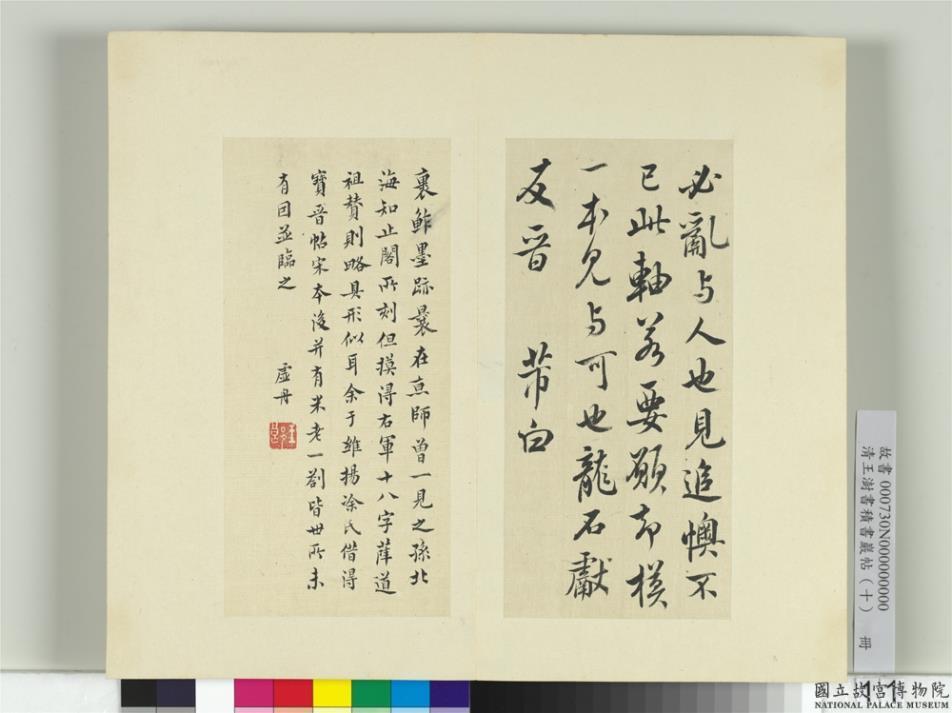 必亂与人也見追懊不
已此軸若要願却模
一本見与可也龍石獻
友晋 芾白
裹鮓墨跡曩在京師曽一見之孫北
海知止閣所刻但摸得右軍十八字薛道
祖賛則略具形似耳余于維揚涂氏借得
寳晋帖宋夲後并有米老一劄皆丗所未
有因並臨之
虛舟
故書 000730N000000000
清王澍書積書巖帖(十) 冊
11
國立故宮博物院
NATIONAL PALACE MUSEUM